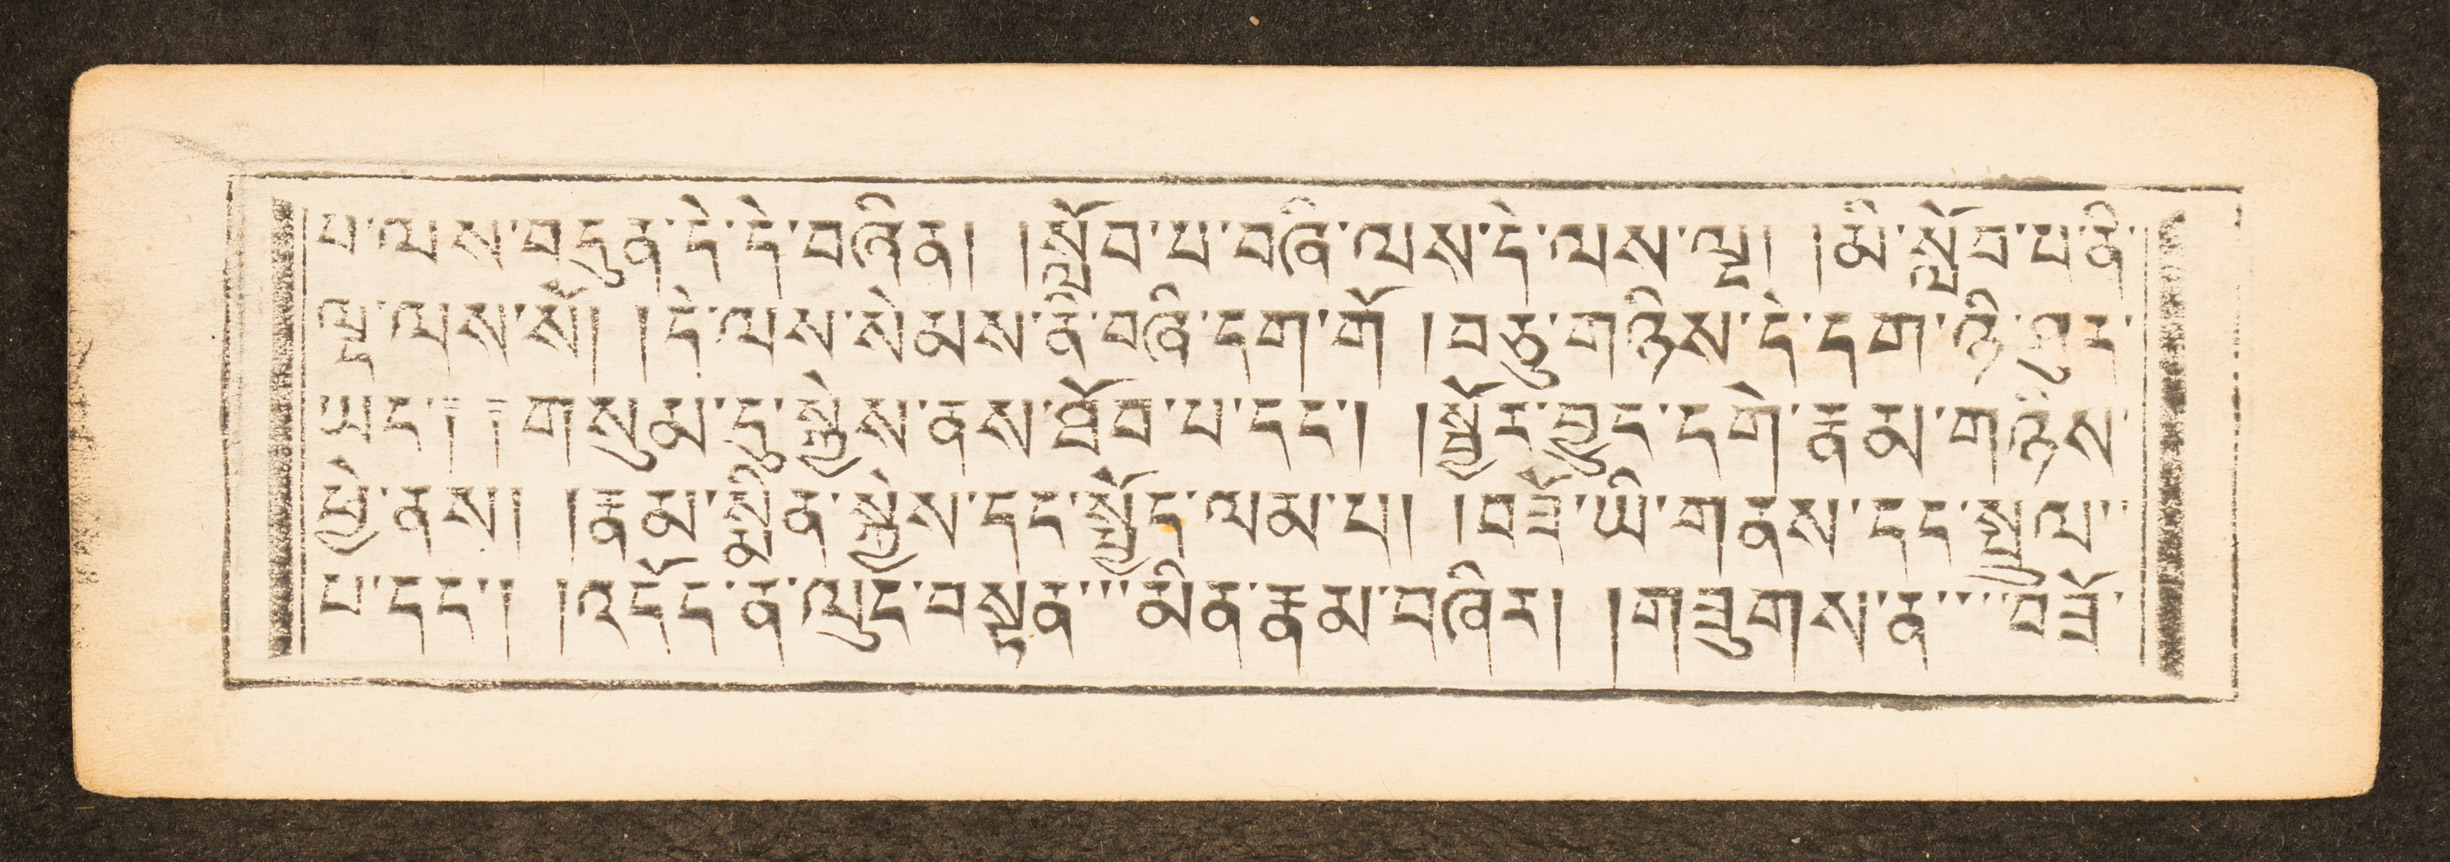 པ་ལས་བདུན་དེ་དེ་བཞིན། །སློབ་པ་བཞི་ལས་དེ་ལས་ལྔ། །མི་སློབ་པ་ནི་
ལྔ་ལས་སོ། །དེ་ལས་སེམས་ནི་བཞི་དག་གོ །བཅུ་གཉིས་དེ་དག་ཉི་ཤུར་
ཡང་། །གསུམ་དུ་སྐྱེས་ནས་ཐོབ་པ་དང་། །སྦྱོར་བྱུང་དགེ་རྣམ་གཉིས་
ཕྱེ་ནས། །རྣམ་སྨིན་སྐྱེས་དང་སྤྱོད་ལམ་པ། །བཟོ་ཡི་གནས་དང་སྤྲུལ་
པ་དང་། །འདོད་ན་ལུང་བསྟན་མིན་རྣམ་བཞིར། །གཟུགས་ན་བཟོ་